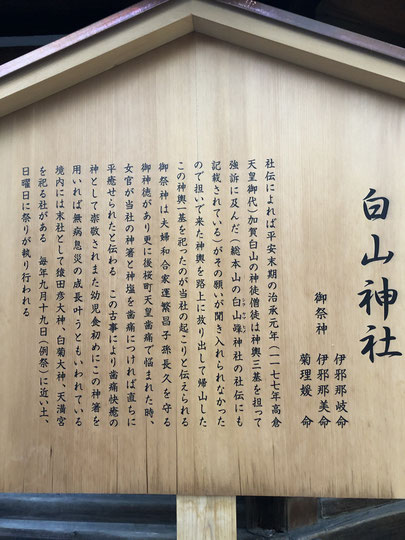 白山神社
御祭神
伊邪那岐命
伊邪那美命
菊理媛　命
社伝によれば平安末期の治承元年(一一七七年高倉
天皇御代)加賀白山の神徒僧徒は神輿三基を担って
強訴に及んだ(総本山の白山比咩神社の社伝にも
記載されている)がその願いが聞き入れられなかった
ので担いで来た神輿を路上に放り出して帰山した
この神輿一基を祀ったのが当社の起こりと伝えられる
御祭神は夫婦和合家運繁昌子孫長久を守る
御神徳があり更に後桜町天皇歯痛で悩まれた時、
女官が当社の神箸と神塩を歯痛につければ直ちに
平癒せられたと伝わる　この古事により歯痛快癒の
神として崇敬されまた幼児食初めにこの神箸を
用いれば無病息災の成長叶うともいわれている
境内には末社として猿田彦大神、白菊大神、天満宮
を祀る社がある　毎年九月十九日(例祭)に近い土、
日曜日に祭りが執り行われる